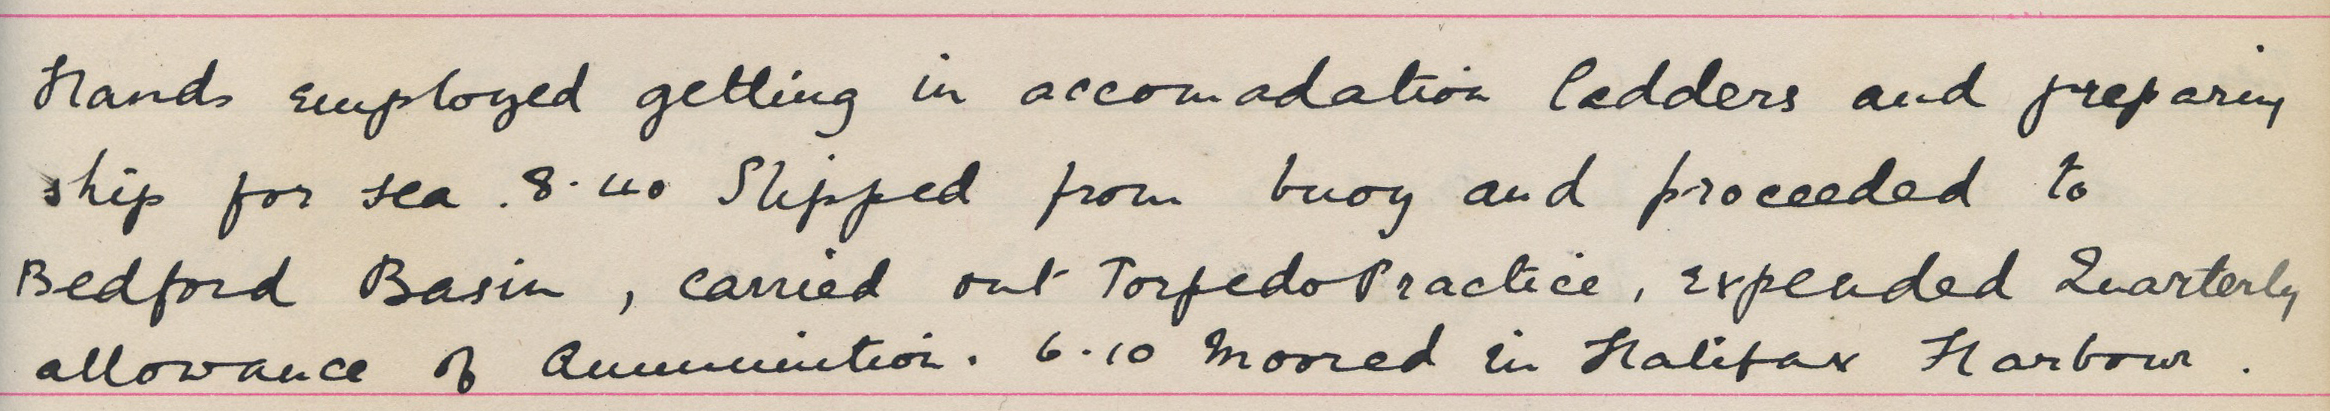 Hands employed getting in accomadation ladders and preparing
ship for sea. 8.40 Slipped from buoy and proceeded to
Bedford Basin, carried out Torpedo Practice, expended Quarterly
allowance of Ammunition. 6.10 Moored in Halifax Harbour.